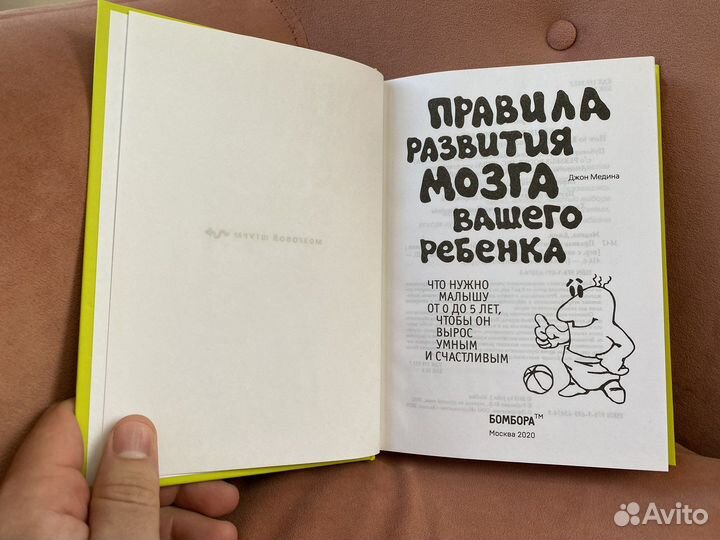 МОЗГОВОЙ ШТУРМ
ПРАВИЛА
РАЗВИТИЯ
МОЗГА
Джон Медина
ВАШЕГО
РЕБЕНКА
ЧТО НУЖНО
МАЛЫШУ
ОТ 0 ДО 5 ЛЕТ,
ЧТОБЫ ОН
ВЫРОС
УМНЫМ
И СЧАСТЛИВЫМ
БОМБОРА™
Москва 2020
Avito